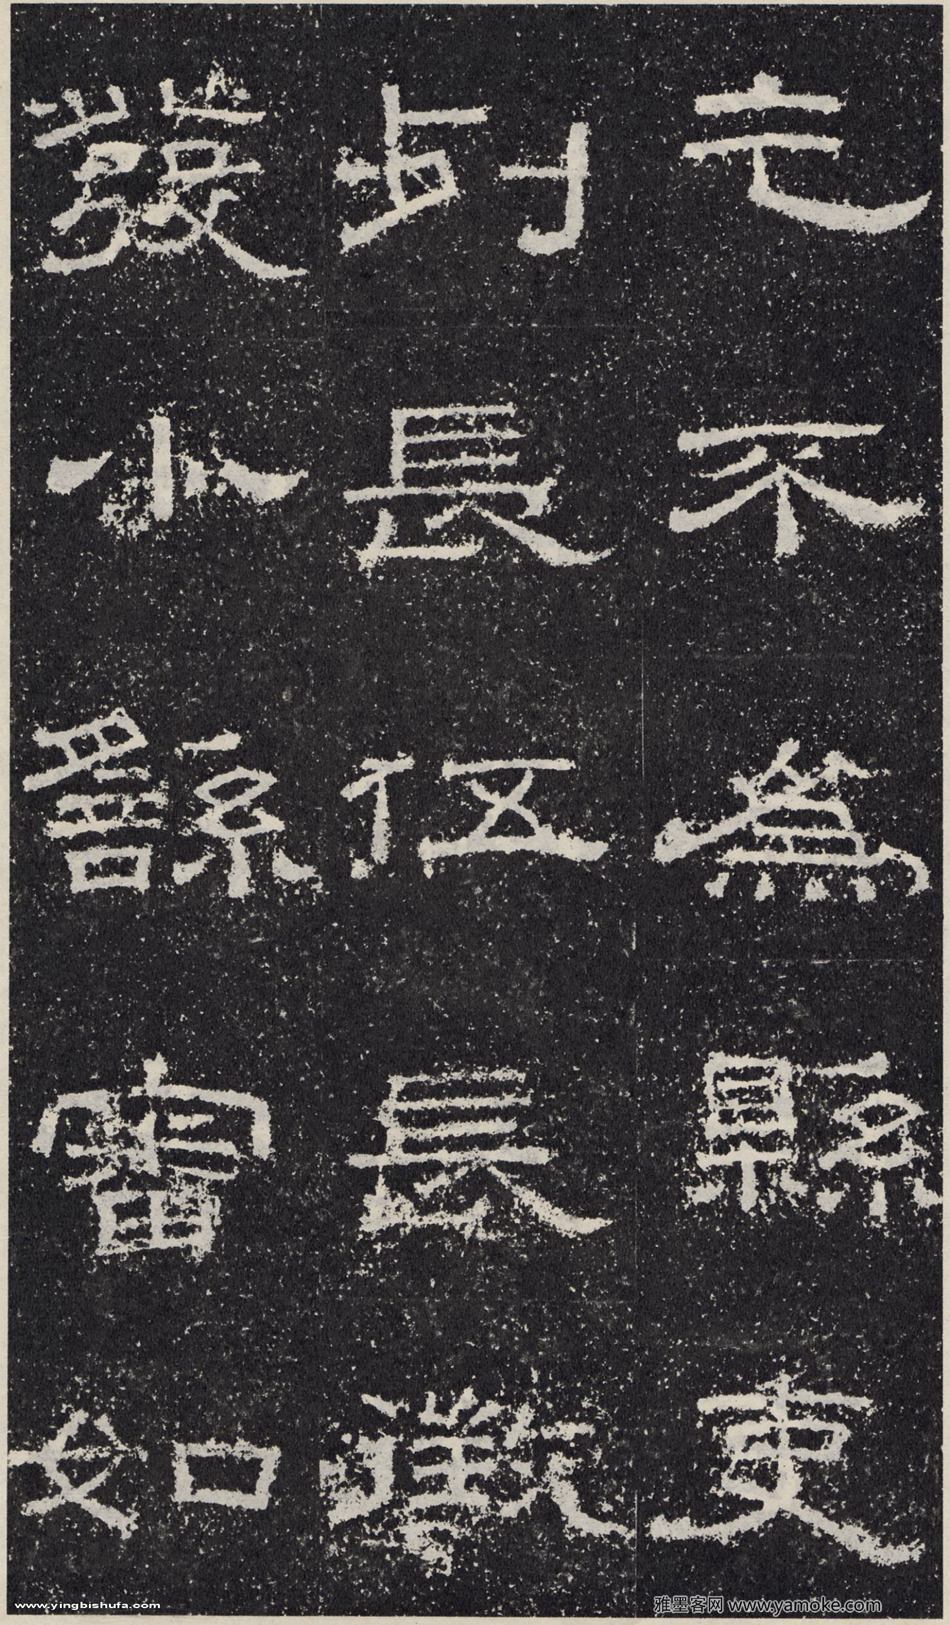 乞不為縣吏
列長伍長徵
發小繇審如
www.yingbishufa.com
雅墨客网 www.yamoke.com